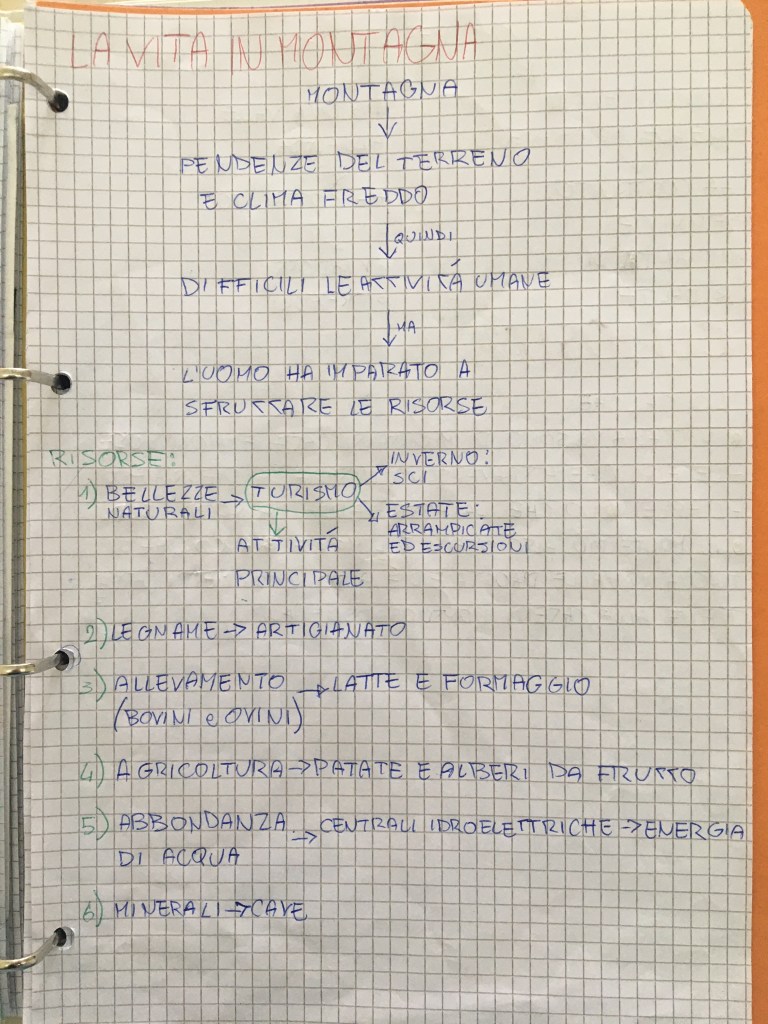 LA VITA IN MONTAGNA
MONTAGNA
↓
PENDENZE DEL TERRENO
E CLIMA FREDDO
↓ QUINDI
DIFFICILI LE ATTIVITÁ UMANE
↓ MA
L'UOMO HA IMPARATO A
SFRUTTARE LE RISORSE
RISORSE:
1) BELLEZZE NATURALI → TURISMO
INVERNO:
SCI
ESTATE:
ARRAMPICATE
ED ESCURSIONI
ATTIVITÁ
PRINCIPALE
2) LEGNAME → ARTIGIANATO
3) ALLEVAMENTO → LATTE E FORMAGGIO
(BOVINI e OVINI)
4) AGRICOLTURA → PATATE E ALBERI DA FRUTTO
5) ABBONDANZA → CENTRALI IDROELETTRICHE → ENERGIA
DI ACQUA
6) MINERALI → CAVE